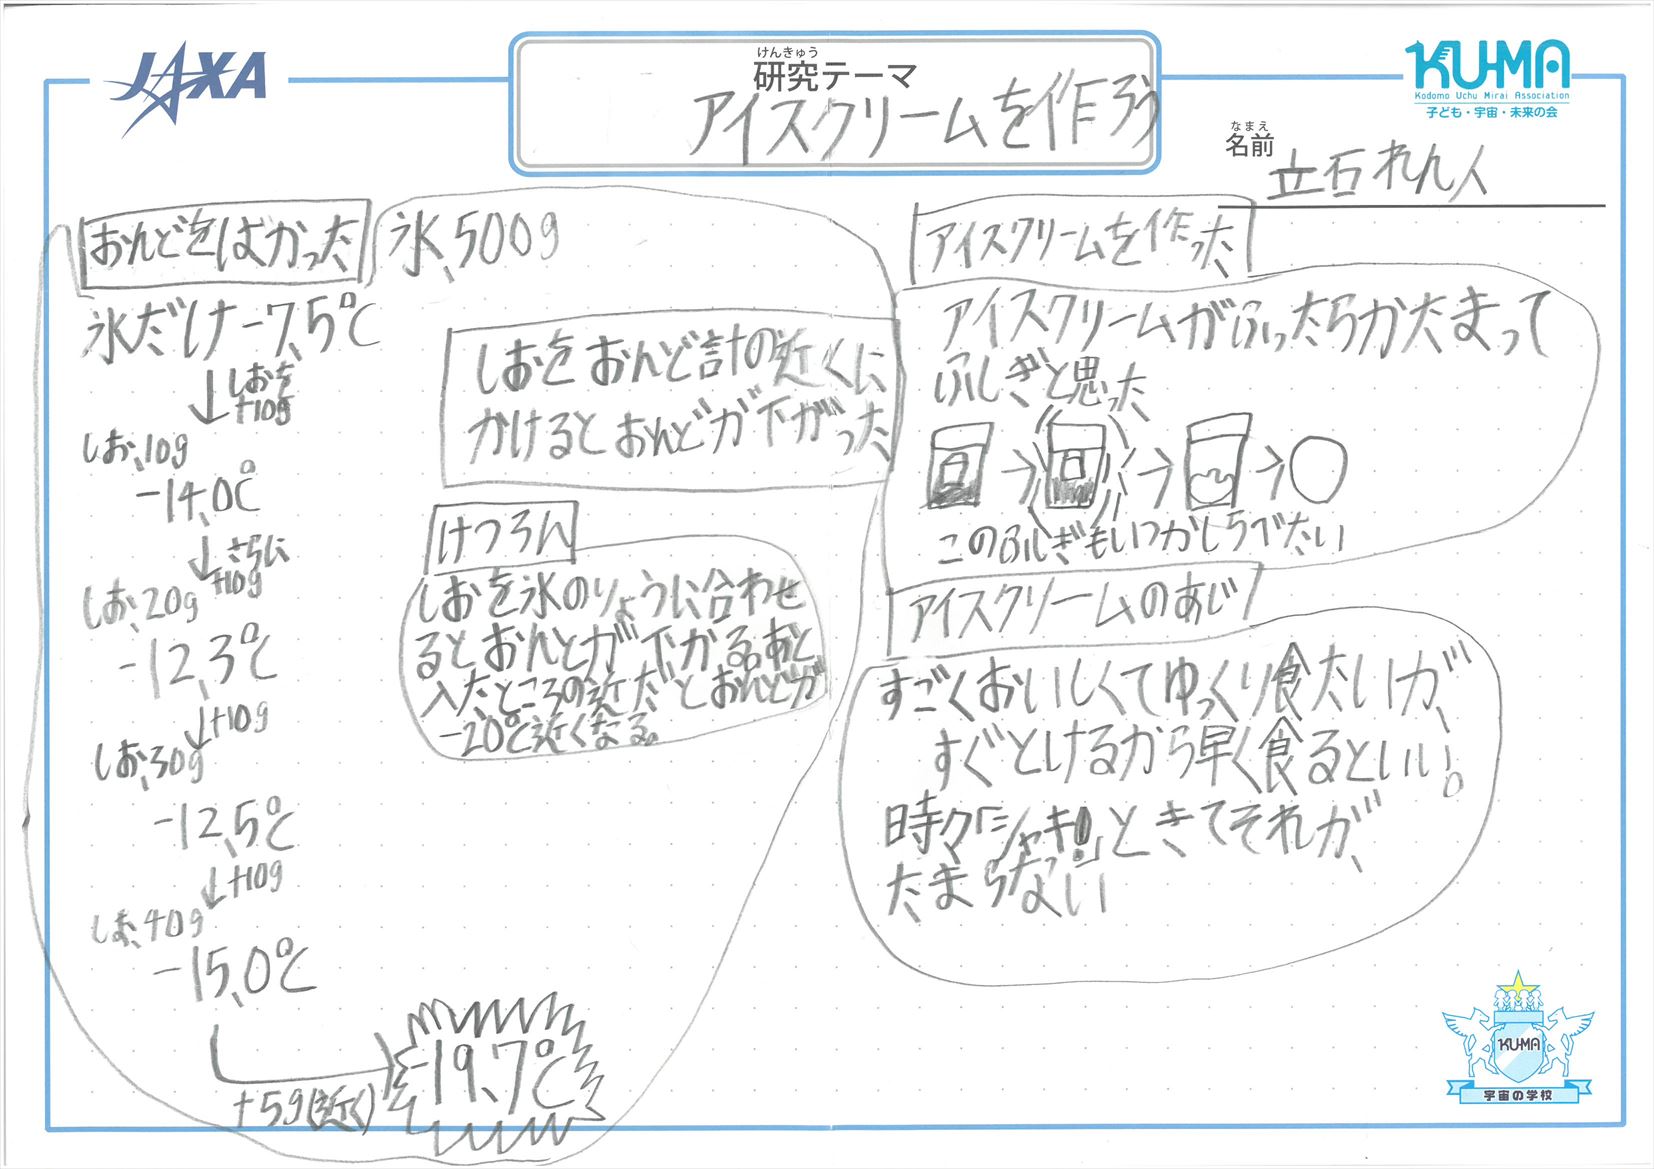 JAXA
けんきゅう
研究テーマ
アイスクリームを作ろう
KU-MA
Kodomo Uchu Mirai Association
子ども・宇宙・未来の会
なまえ
名前
立石れん人
おんどをはかった
氷、500g
氷だけ-7.5℃
しおを
+10g
しお、10g
-14.0℃
さらに
+10g
しお、20g
-12.3℃
+10g
しお、30g
-12.5℃
+10g
しお、40g
-15.0℃
+5g(近く)
-19.7℃
しおをおんど計の近くに
かけるとおんどが下がった
けつろん
しおを氷のりょうに合わせ
るとおんとが下がる。あと
入たところの近だとおんどが
-20℃近くなる。
アイスクリームを作った
アイスクリームがふったらかたまって
ふしぎと思った
このふしぎもいつかしらべたい
アイスクリームのあじ
すごくおいしくてゆっくり食たいが、
すぐとけるから早く食るといい。
時々「シャキ!」ときてそれが、
たまらない
KU-MA
宇宙の学校